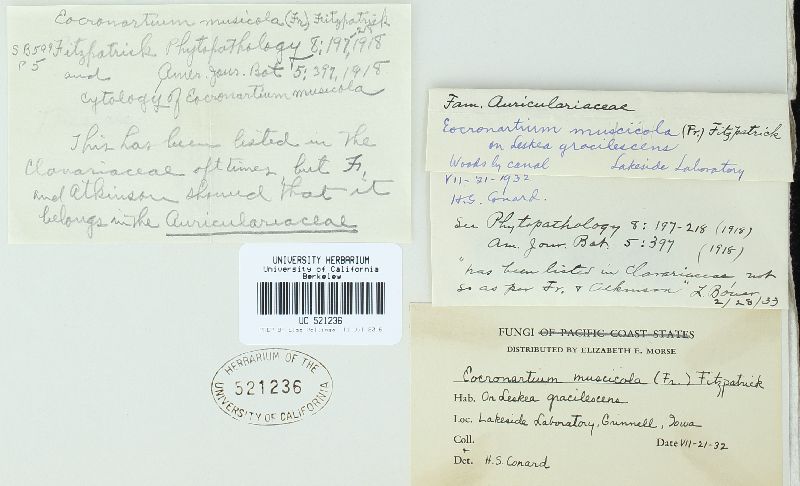 Eocronartium musicola (Fr.) Fitzpatrick
SB599 Fitzpatrick Phytopathology 8:197, 1918
P5 and Amer. Jour. Bot 5:397, 1918
cytology of Eocronartium musicola
This has been listed in the
Clavariaceae oft times, but
and Atkinson showed that it
belongs in the Auriculariaceae
UNIVERSITY HERBARIUM
University of California
Berkeley
UC 521236
HERBARIUM OF THE
521236
UNIVERSITY OF CALIFORNIA
Fam. Auriculariaceae
Eocronartium muscicola (Fr.) Fitzpatrick
on Leskea gracilescens
Woods by canal Lakeside Laboratory
VII-31-1932
H.S. Conard.
See Phytopathology 8: 197-218 (1918)
Am. Jour. Bot. 5:397 (1918)
"has been listed in Clavariaceae not
so as per Fr. & Atkinson" L. Bonar
2/28/33
FUNGI OF PACIFIC COAST STATES
DISTRIBUTED BY ELIZABETH E. MORSE
Eocronartium muscicola (Fr.) Fitzpatrick
Hab. On Leskea gracilescens
Loc. Lakeside Laboratory, Grinnell, Iowa
Coll. Date VII-21-32
+
Det. H.S. Conard